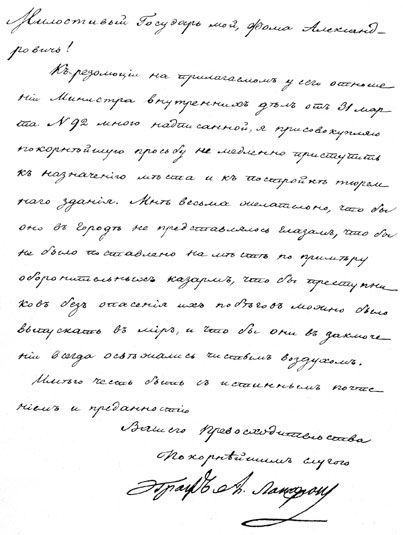 Милостивый Государь мой, Фома Александ-
ровичь!
Къ резолюціи на прилагаемомъ у сего отноше
ніи Министра внутреннихъ дѣлъ отъ 31 мар
та N 92 мною надписанной, я присовокупляю
покорнѣйшую просьбу не медленно приступить
къ назначенію мѣста и къ постройкѣ тюрем
наго зданія. Мнѣ весьма желательно, что бы
оно въ городѣ не представлялось глазамъ, что бы
не было поставлено на мѣстѣ по примѣру
оборонительныхъ казармъ, что бы преступни
ковъ безъ опасенія ихъ побѣговъ можно было
выпускать въ міръ, и что бы они въ заключе
ніи всегда освѣжались чистымъ воздухомъ.
Имѣю честь быть съ истиннымъ почте
ніемъ и преданностію
Вашего Превосходительства
Покорнѣйшимъ слугою
Графъ А. Ланжерон